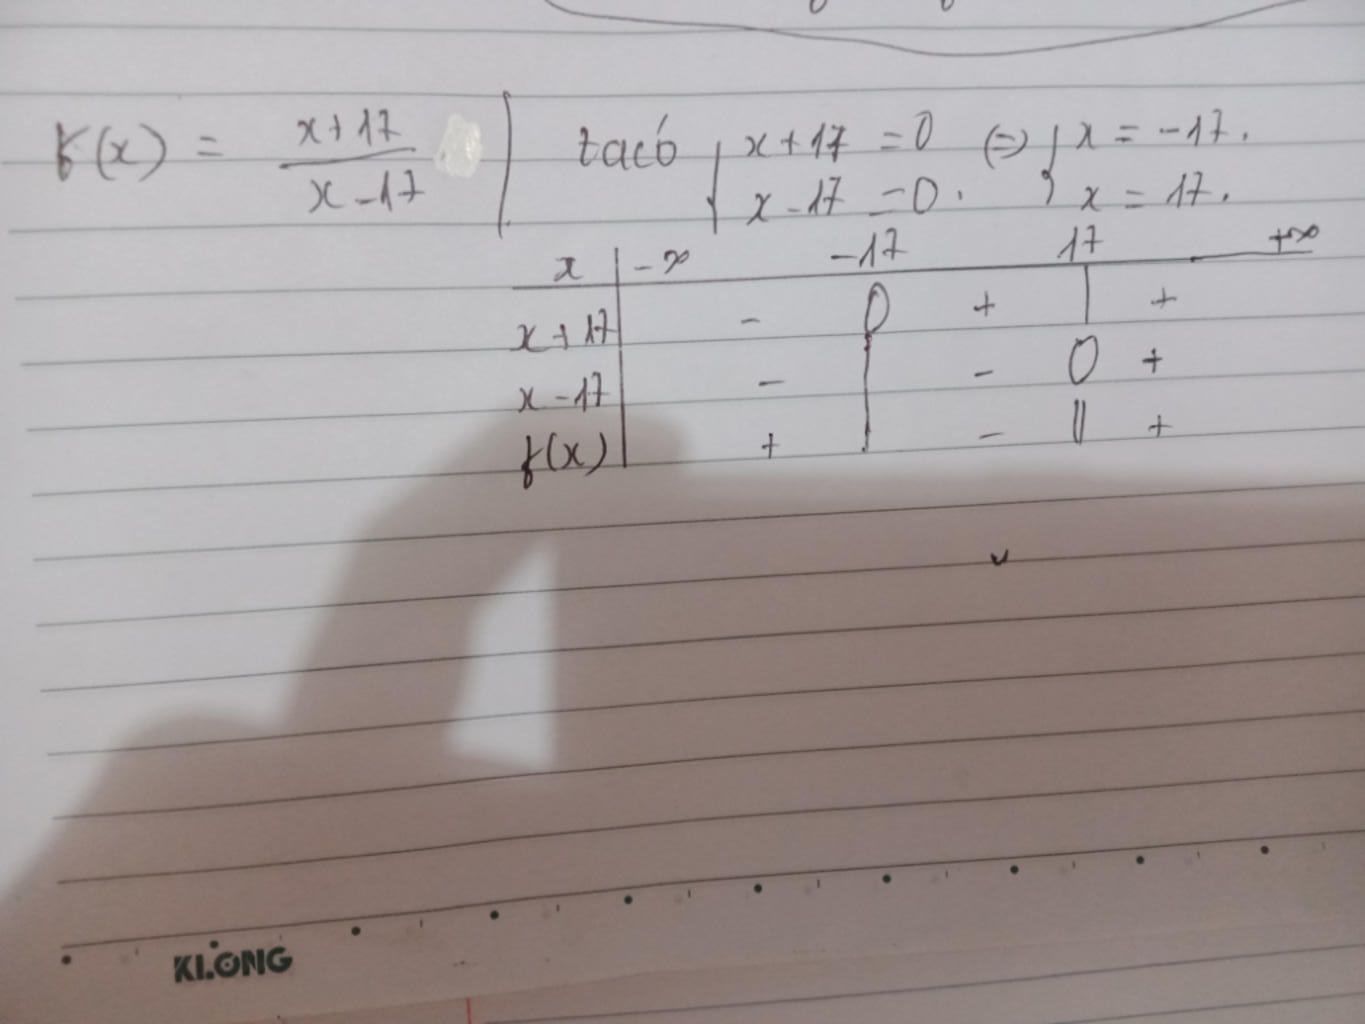 f(x) = x+17 / x-17 | tacó { x+17 = 0 (=) { x = -17.
x-17 = 0. x = 17.
x | -∞ -17 17 +∞
x+17 | - 0 + | +
x-17 | - | - 0 +
f(x) | + | - || +
KLONG